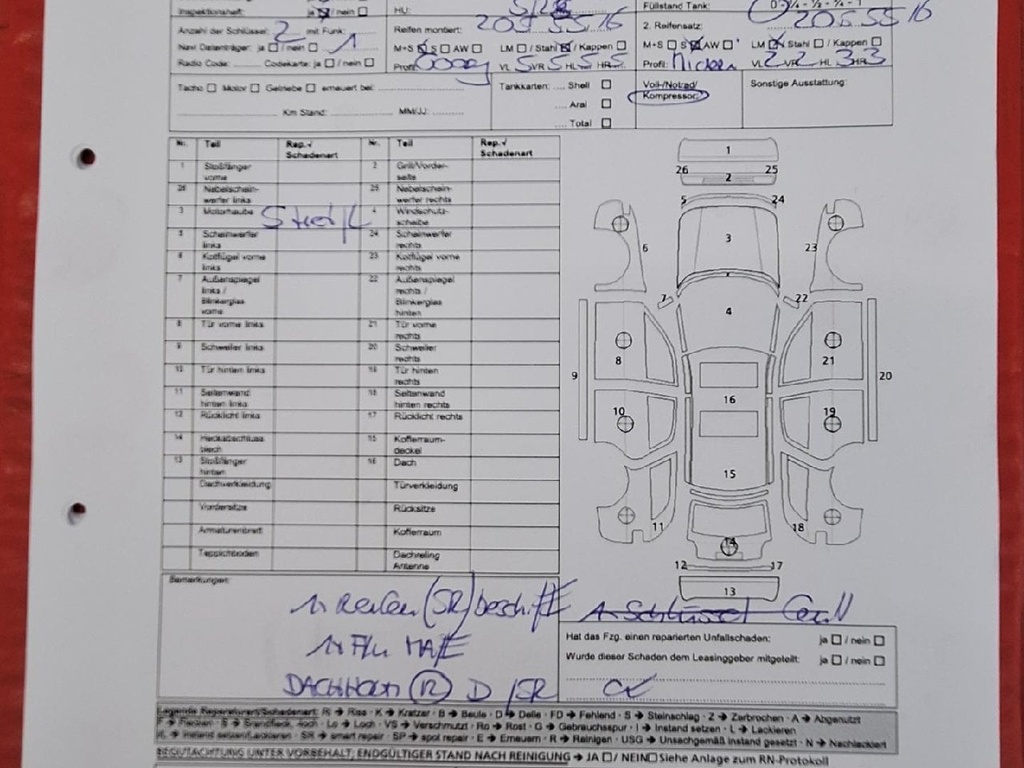 Inspektionsheft: ja / nein HU: 5/25 Füllstand Tank: 0 ¼ - ½ - ¾ - 1
Anzahl der Schlüssel: 2 mit Funk: 1 Reifen montiert: 205 55 16 2. Reifensatz: 205 55 16
Navi Datenträger: ja / nein M+S S AW LM / Stahl / Kappen M+S S AW LM Stahl / Kappen
Radio Code: Codekarte: ja / nein Profil: VL 5 VR 5 HL 5 HR 5 Profil: VL 2 VR 2 HL 3 HR 3
Tacho Motor Getriebe erneuert bei: Tankkarten: .... Shell Voll-/Notrad/ Sonstige Ausstattung:
.... Aral Kompressor:
Km Stand: MM/JJ: .... Total
Nr. Teil Rep.√ Schadenart Nr. Teil Rep.√ Schadenart
1 Stoßfänger vorne 2 Grill/Vorderseite
26 Nebelscheinwerfer links 25 Nebelscheinwerfer rechts
3 Motorhaube 4 Windschutzscheibe
5 Scheinwerfer links 24 Scheinwerfer rechts
6 Kotflügel vorne links 23 Kotflügel vorne rechts
7 Außenspiegel links / Blinkerglas vorne 22 Außenspiegel rechts / Blinkerglas hinten
8 Tür vorne links 21 Tür vorne rechts
9 Schweller links 20 Schweller rechts
10 Tür hinten links 19 Tür hinten rechts
11 Seitenwand hinten links 18 Seitenwand hinten rechts
12 Rücklicht links 17 Rücklicht rechts
14 Heckabschlussblech 15 Kofferraumdeckel
13 Stoßfänger hinten 16 Dach
Dachverkleidung Türverkleidung
Vordersitze Rücksitze
Armaturenbrett Kofferraum
Teppichboden Dachreling Antenne
1
26 25
2
5 24
3
6 23
7 22
4
8 21
9 20
16
10 19
15
11 18
14
12 17
13
Bemerkungen:
1x Reifen (SR) 1x Schlüssel
Hat das Fzg. einen reparierten Unfallschaden: ja / nein
Wurde dieser Schaden dem Leasinggeber mitgeteilt: ja / nein
Legende Reparaturen/Schadenart: Ri → Riss · K → Kratzer · B → Beule · D → Delle · FD → Fehlend · S → Steinschlag · Z → Zerbrochen · A → Abgenutzt
F → Flecken · S → Brandfleck, -loch · Lo → Loch · VS → Verschmutzt · Ro → Rost · G → Gebrauchsspur · I → Instand setzen · L → Lackieren
IL → Instand setzen/Lackieren · SR → smart repair · SP → spot repair · E → Erneuern · R → Reinigen · USG → Unsachgemäß instand gesetzt · N → Nachlackiert
BEGUTACHTUNG UNTER VORBEHALT; ENDGÜLTIGER STAND NACH REINIGUNG → JA / NEIN Siehe Anlage zum RN-Protokoll